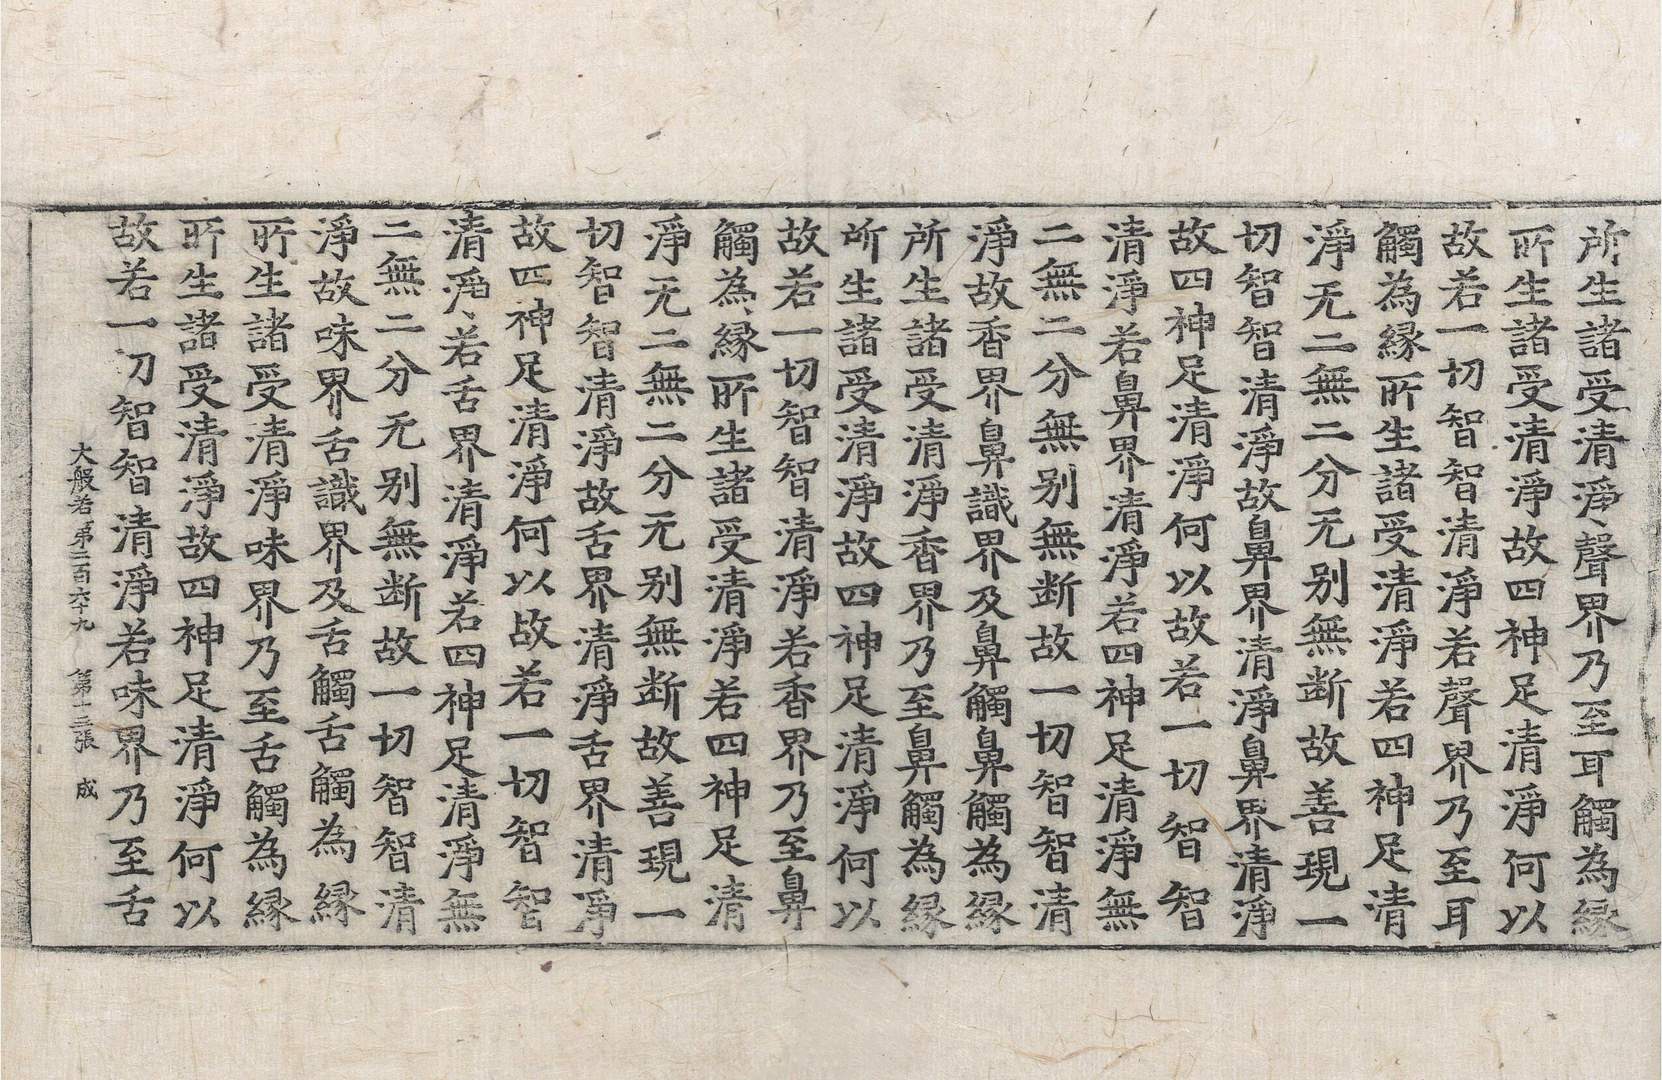 所生諸受清淨聲界乃至耳觸為縁
所生諸受清淨故四神足清淨何以
故若一切智智清淨若聲界乃至耳
觸為縁所生諸受清淨若四神足清
淨无二無二分无别無断故善現一
切智智清淨故鼻界清淨鼻界清淨
故四神足清淨何以故若一切智智
清淨若鼻界清淨若四神足清淨無
二無二分無别無断故一切智智清
淨故香界鼻識界及鼻觸鼻觸為縁
所生諸受清淨香界乃至鼻觸為縁
所生諸受清淨故四神足清淨何以
故若一切智智清淨若香界乃至鼻
觸為縁所生諸受清淨若四神足清
淨无二無二分无别無断故善現一
切智智清淨故舌界清淨舌界清淨
故四神足清淨何以故若一切智智
清淨若舌界清淨若四神足清淨無
二無二分无别無断故一切智智清
淨故味界舌識界及舌觸舌觸為縁
所生諸受清淨味界乃至舌觸為縁
所生諸受清淨故四神足清淨何以
故若一切智智清淨若味界乃至舌
大般若第二百六十九 第十二張 成